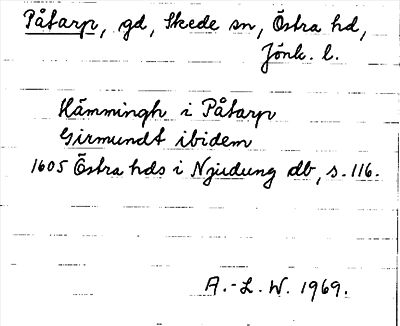 Påtarp, gd, Skede sn, Östra hd,
Jönk. l.
Hämmingh i Påtarp
Girmundt ibidem
1605 Östra hds i Njudung db, s. 116.
A.-L. W. 1969.